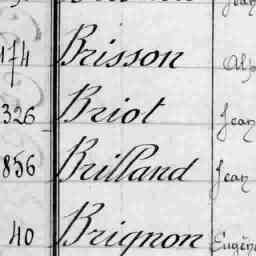 174 Brisson
326 Briot Jean
856 Brilland Jean
40 Brignon Eugèn